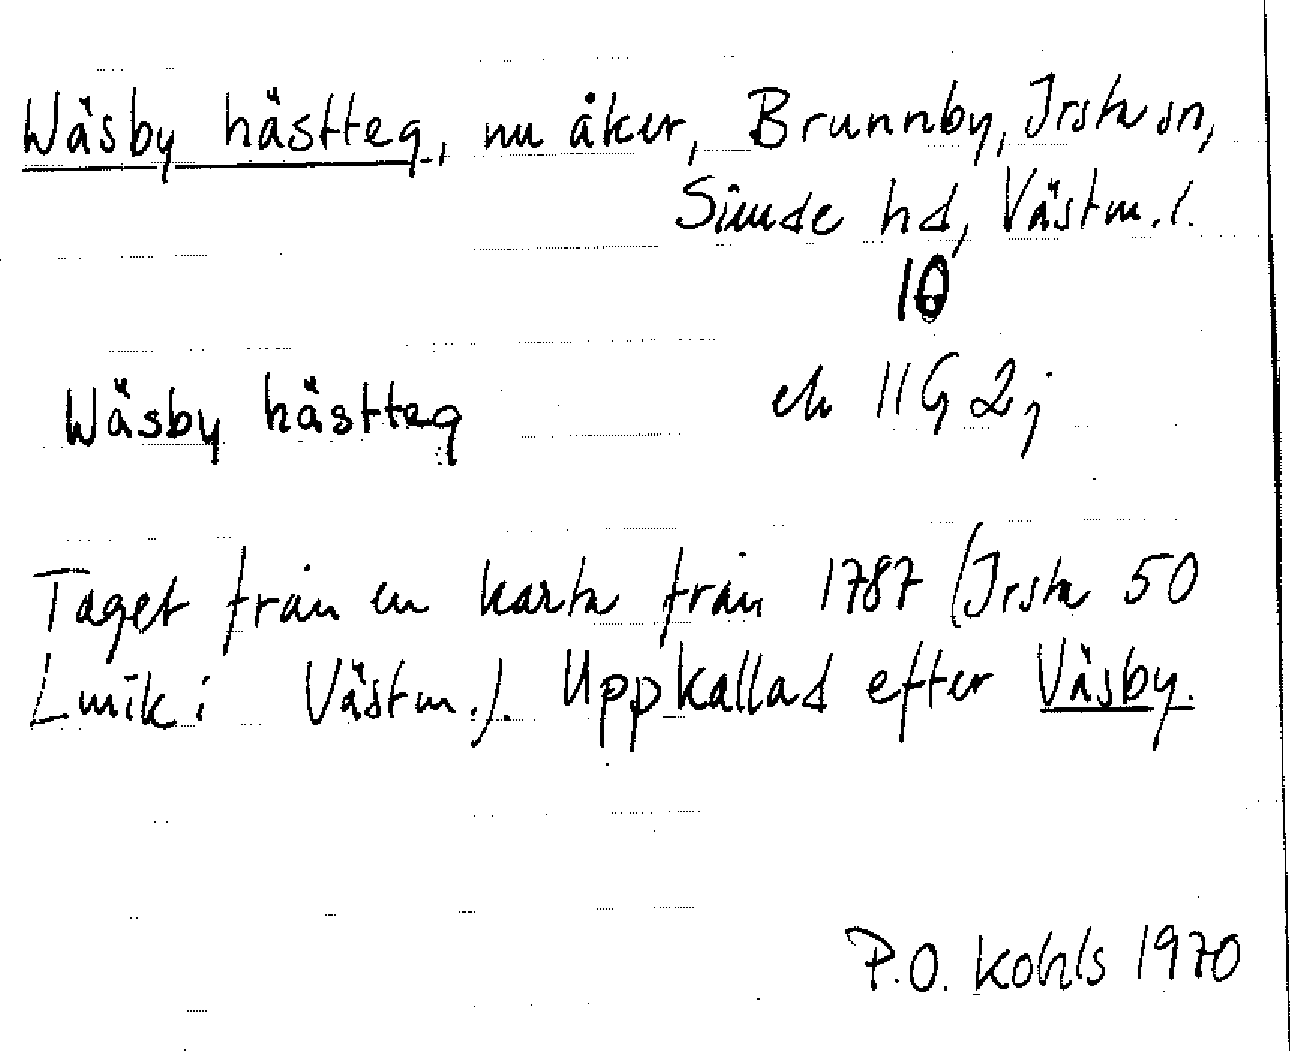 Wäsby hästteg, nu åker, Brunnby, Irsta sn,
Siende hd, Västm. l.
10
ek 11G 2j
Wäsby hästteg
Taget från en karta från 1787 (Irsta 50
Lmtk i Västm.). Uppkallad efter Väsby.
P.O. Kohls 1970